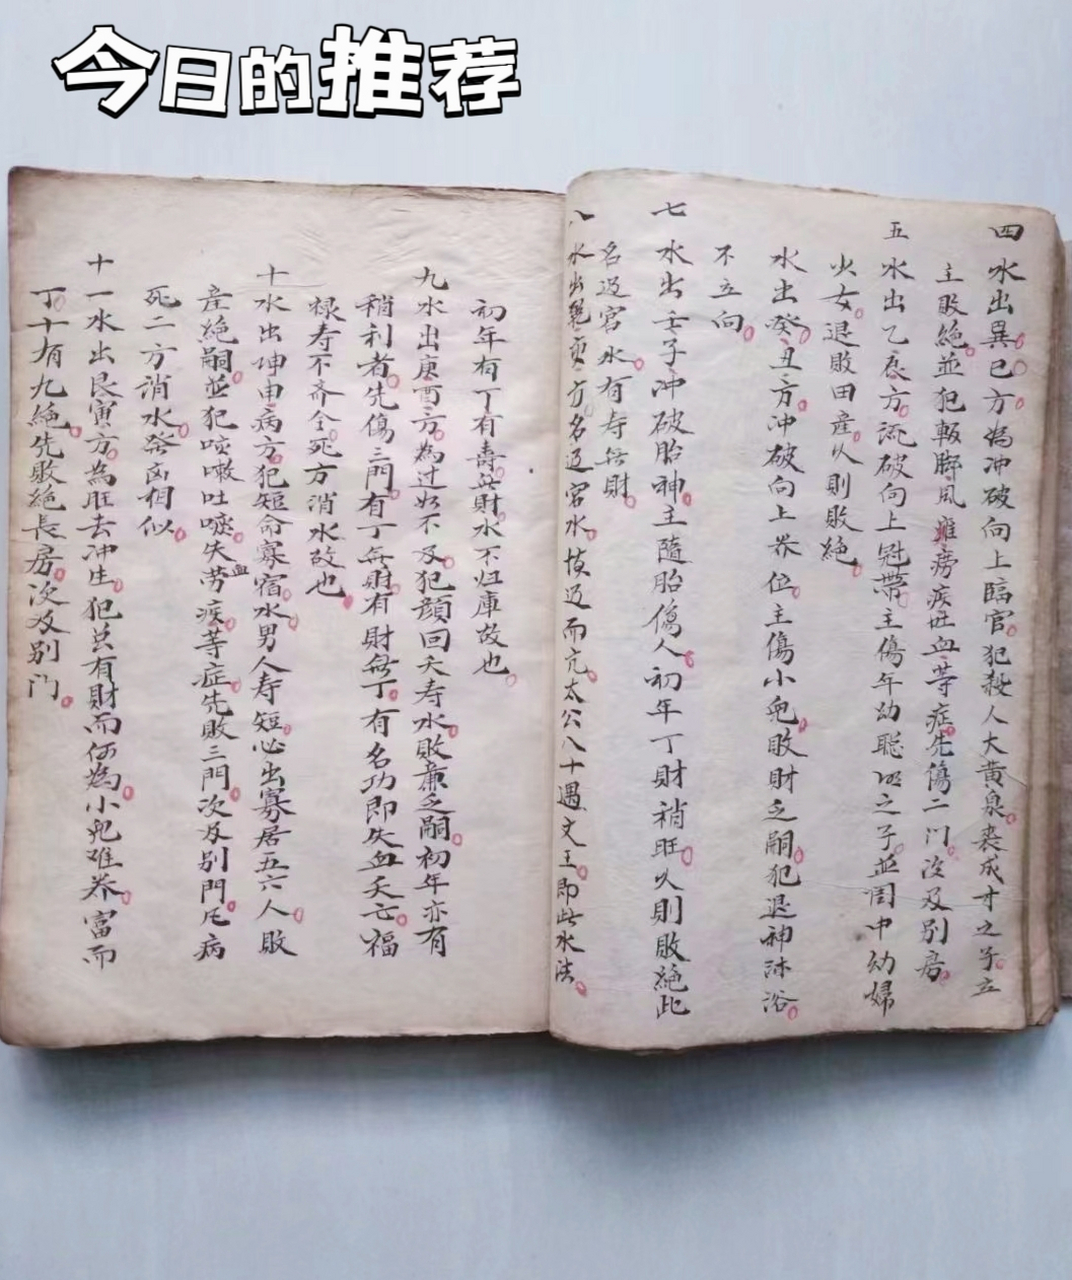 今日的推荐
四 水出巽巳方為冲破向上臨官犯殺人大黄泉喪成才之子立
主敗絶並犯 瘫痨疾 血等症先傷二门次及别房
五 水出乙辰方流破向上冠帶主傷年幼聪明之子並闺中幼婦
少女退敗田産久則敗絶
水出癸丑方冲破向上养位主傷小兒敗財乏嗣犯退神沐浴
不立向
七 水出壬子冲破胎神主隨胎傷人初年丁財稍旺久則敗絶此
名过宫水有寿無財
八 水出 方名过宫水横过而亢太公八十遇文王即此水法
初年有丁有壽無財水不归庫故也
九 水出庚酉方為过如不及犯顔回夭寿水敗産乏嗣初年亦有
稍利者先傷三門有丁無財有財無丁有名功即失血夭亡福
禄寿不齐全死方消水故也
十 水出坤申病方犯短命寡宿水男人寿短必出寡居五六人敗
産絶嗣並犯咳嗽吐痰失血劳疾等症先敗三門次及别門凡病
死二方消水癸凶相似
十一水出艮寅方為旺去冲生犯出有財而何為小兒难养富而
丁十有九絶先敗絶長房次及别门